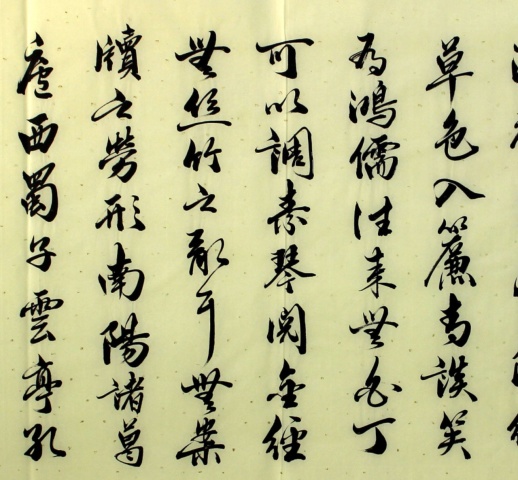 草色入簾青談笑
有鴻儒往来無白丁
可以調素琴閱金經
無絲竹之亂耳無案
牘之勞形南陽諸葛
廬西蜀子雲亭孔